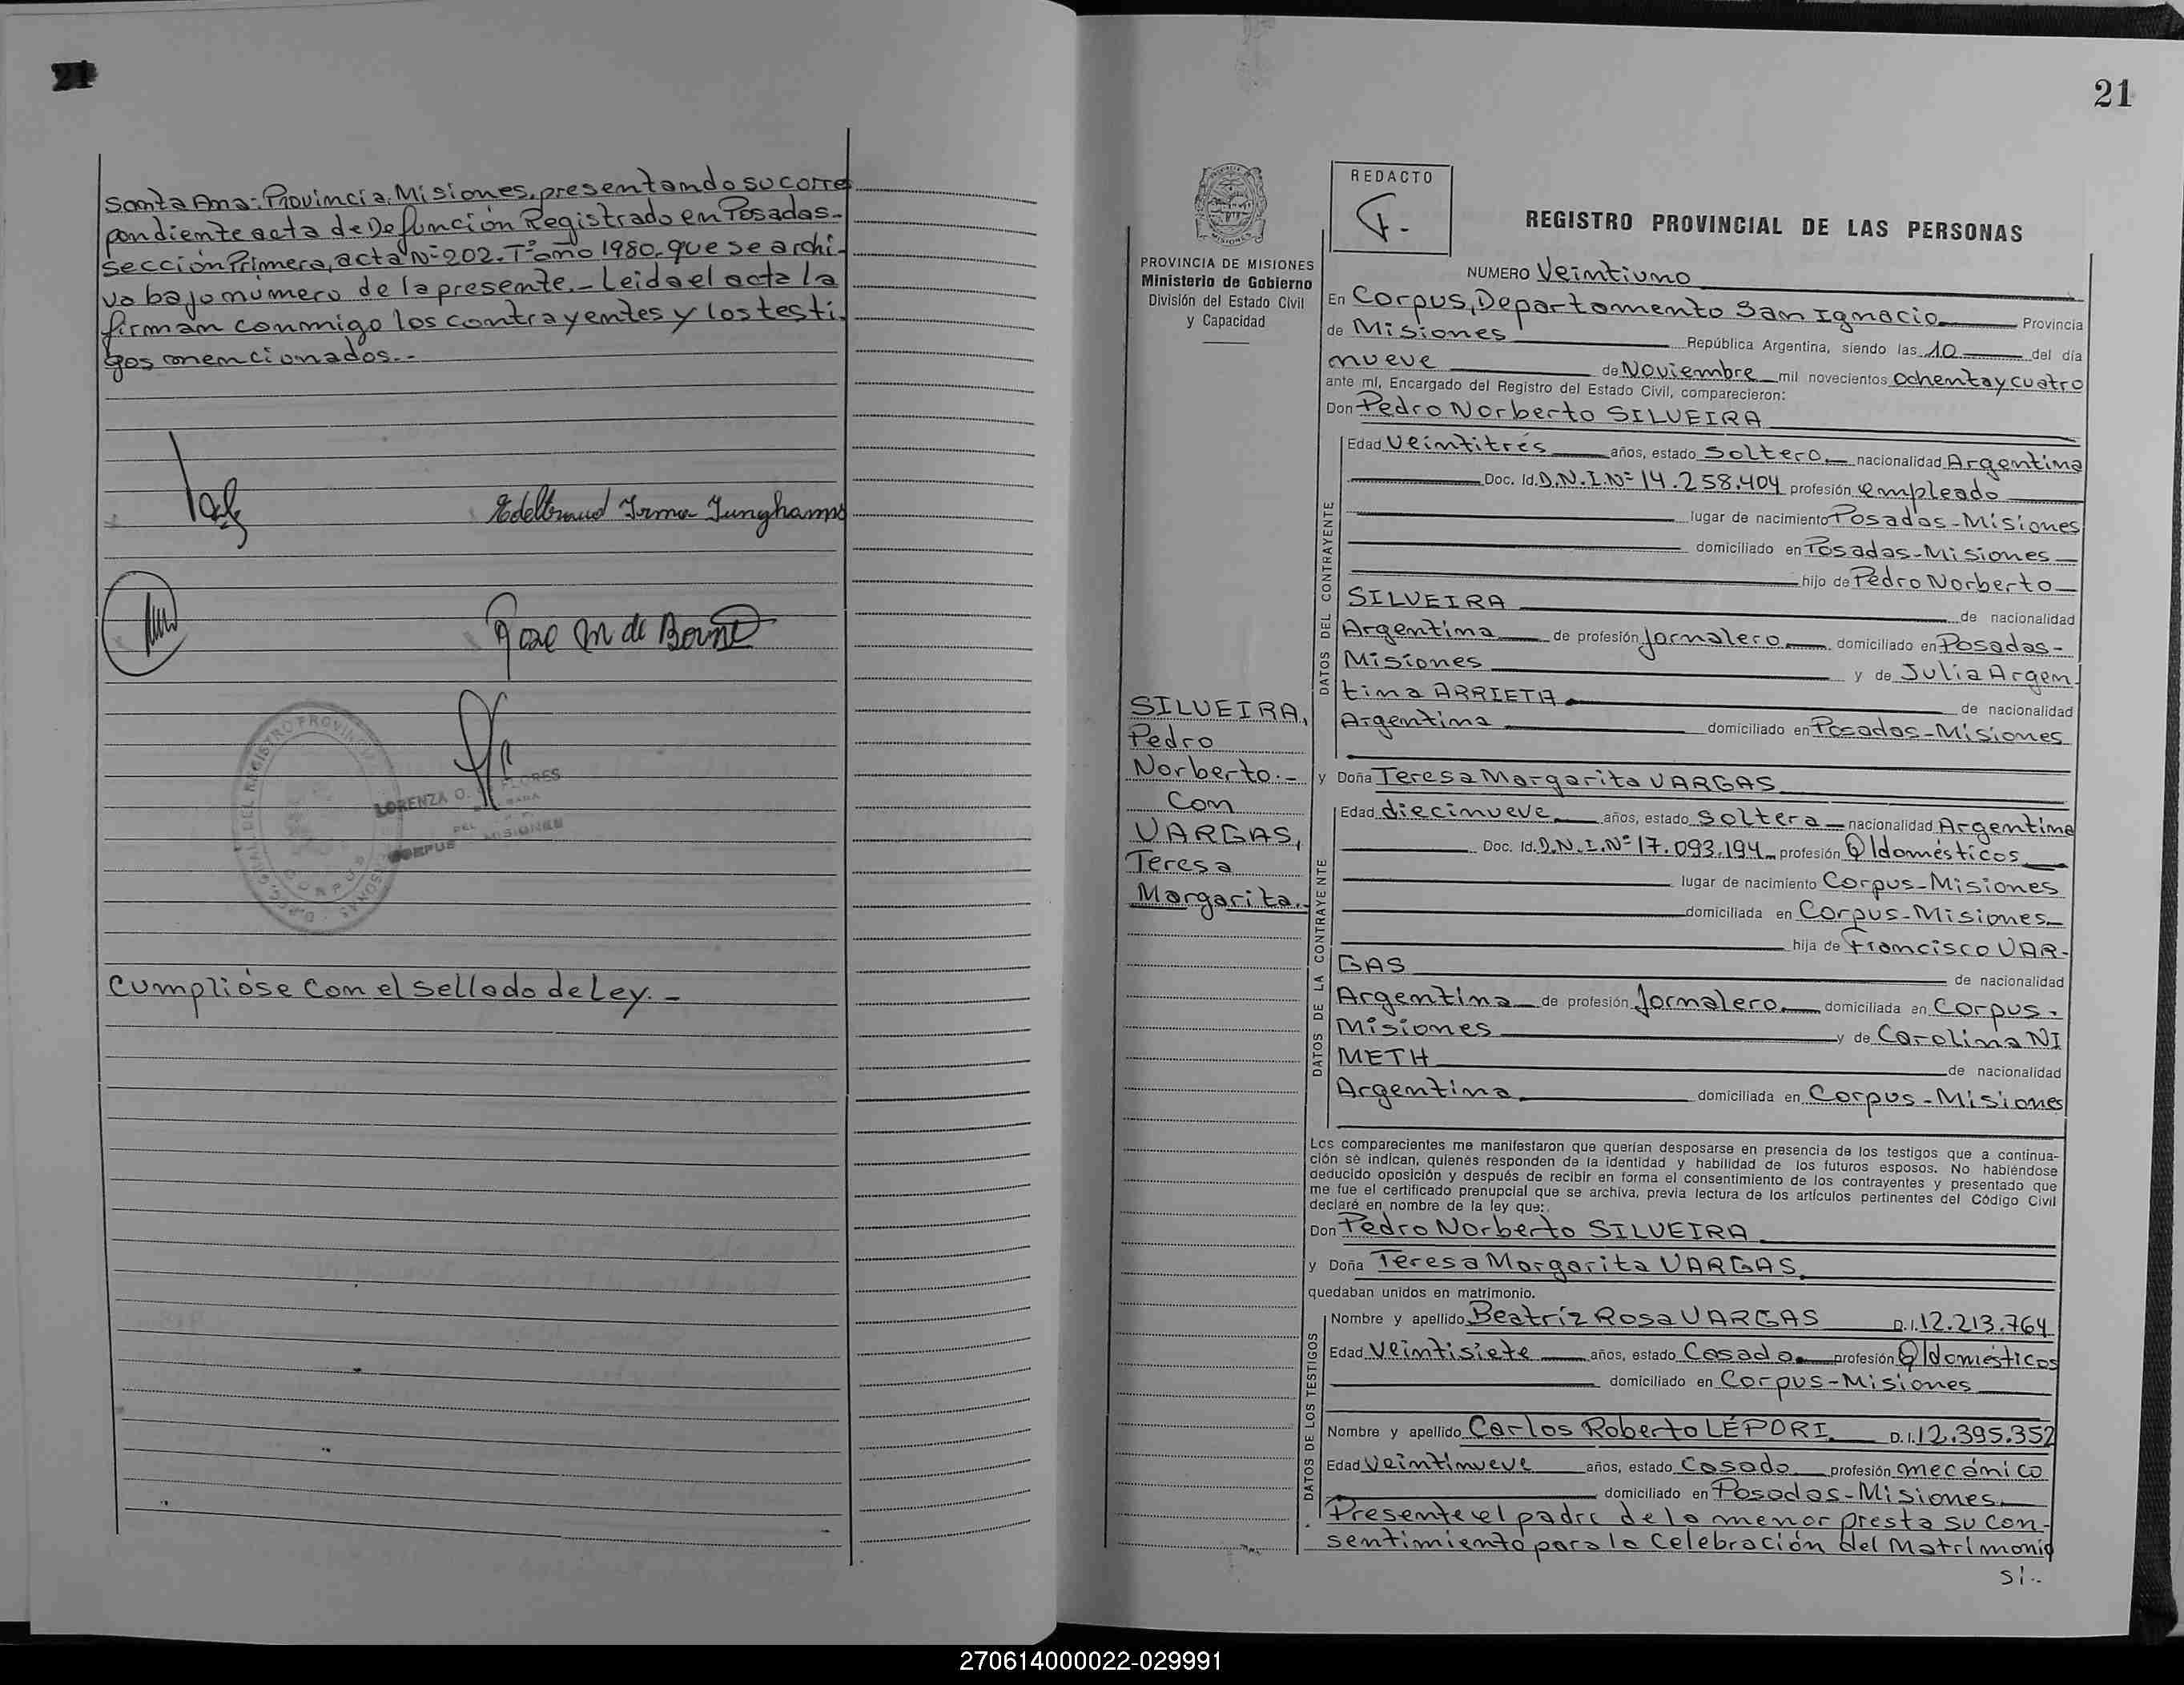 21
Santa Ana-Provincia Misiones, presentando su corres
pondiente acta de Defunción Registrado en Posadas-
Sección Primera, acta Nº 202. Tº año 1980, que se archi-
va bajo número de la presente.- Leida el acta la
firman conmigo los contrayentes y los testi-
gos mencionados.-
Edeltraud Irma Junghanns
LORENZA O. DE FLORES
CORPUS MISIONES
CORPUS
Cumplióse con el sellado de Ley.-
21
PROVINCIA DE MISIONES
Ministerio de Gobierno
División del Estado Civil
y Capacidad
REDACTO
F.-
REGISTRO PROVINCIAL DE LAS PERSONAS
NUMERO Veintiuno
En Corpus, Departamento San Ignacio Provincia
de Misiones República Argentina, siendo las 10 del día
nueve de Noviembre mil novecientos ochenta y cuatro
ante mí, Encargado del Registro del Estado Civil, comparecieron:
Don Pedro Norberto SILVEIRA
DATOS DEL CONTRAYENTE
Edad Veintitrés años, estado Soltero.- nacionalidad Argentina
Doc. Id. D.N.I. Nº 14.258.404 profesión empleado
lugar de nacimiento Posadas-Misiones
domiciliado en Posadas-Misiones
hijo de Pedro Norberto
SILVEIRA de nacionalidad
Argentina de profesión Jornalero domiciliado en Posadas-
Misiones y de Julia Argen-
tina ARRIETA de nacionalidad
Argentina domiciliado en Posadas-Misiones
SILVEIRA,
Pedro
Norberto.-
Con
VARGAS,
Teresa
Margarita.-
y Doña Teresa Margarita VARGAS
DATOS DE LA CONTRAYENTE
Edad diecinueve años, estado Soltera nacionalidad Argentina
Doc. Id. D.N.I. Nº 17.093.194 profesión Q/domésticos
lugar de nacimiento Corpus-Misiones
domiciliada en Corpus-Misiones
hija de Francisco VAR-
GAS de nacionalidad
Argentina de profesión Jornalero domiciliada en Corpus-
Misiones y de Carolina NI
METH de nacionalidad
Argentina domiciliada en Corpus-Misiones
Los comparecientes me manifestaron que querían desposarse en presencia de los testigos que a continua-
ción se indican, quienes responden de la identidad y habilidad de los futuros esposos. No habiéndose
deducido oposición y después de recibir en forma el consentimiento de los contrayentes y presentado que
me fue el certificado prenupcial que se archiva, previa lectura de los artículos pertinentes del Código Civil
declaré en nombre de la ley que:
Don Pedro Norberto SILVEIRA
y Doña Teresa Margarita VARGAS
quedaban unidos en matrimonio.
DATOS DE LOS TESTIGOS
Nombre y apellido Beatriz Rosa VARGAS D.I. 12.213.764
Edad Veintisiete años, estado Casada profesión Q/domésticos
domiciliado en Corpus-Misiones
Nombre y apellido Carlos Roberto LÉPORI D.I. 12.395.352
Edad Veintinueve años, estado Casado profesión mecánico
domiciliado en Posadas-Misiones
Presente el padre de la menor presta su con-
sentimiento para la celebración del Matrimonio
si..
270614000022-029991